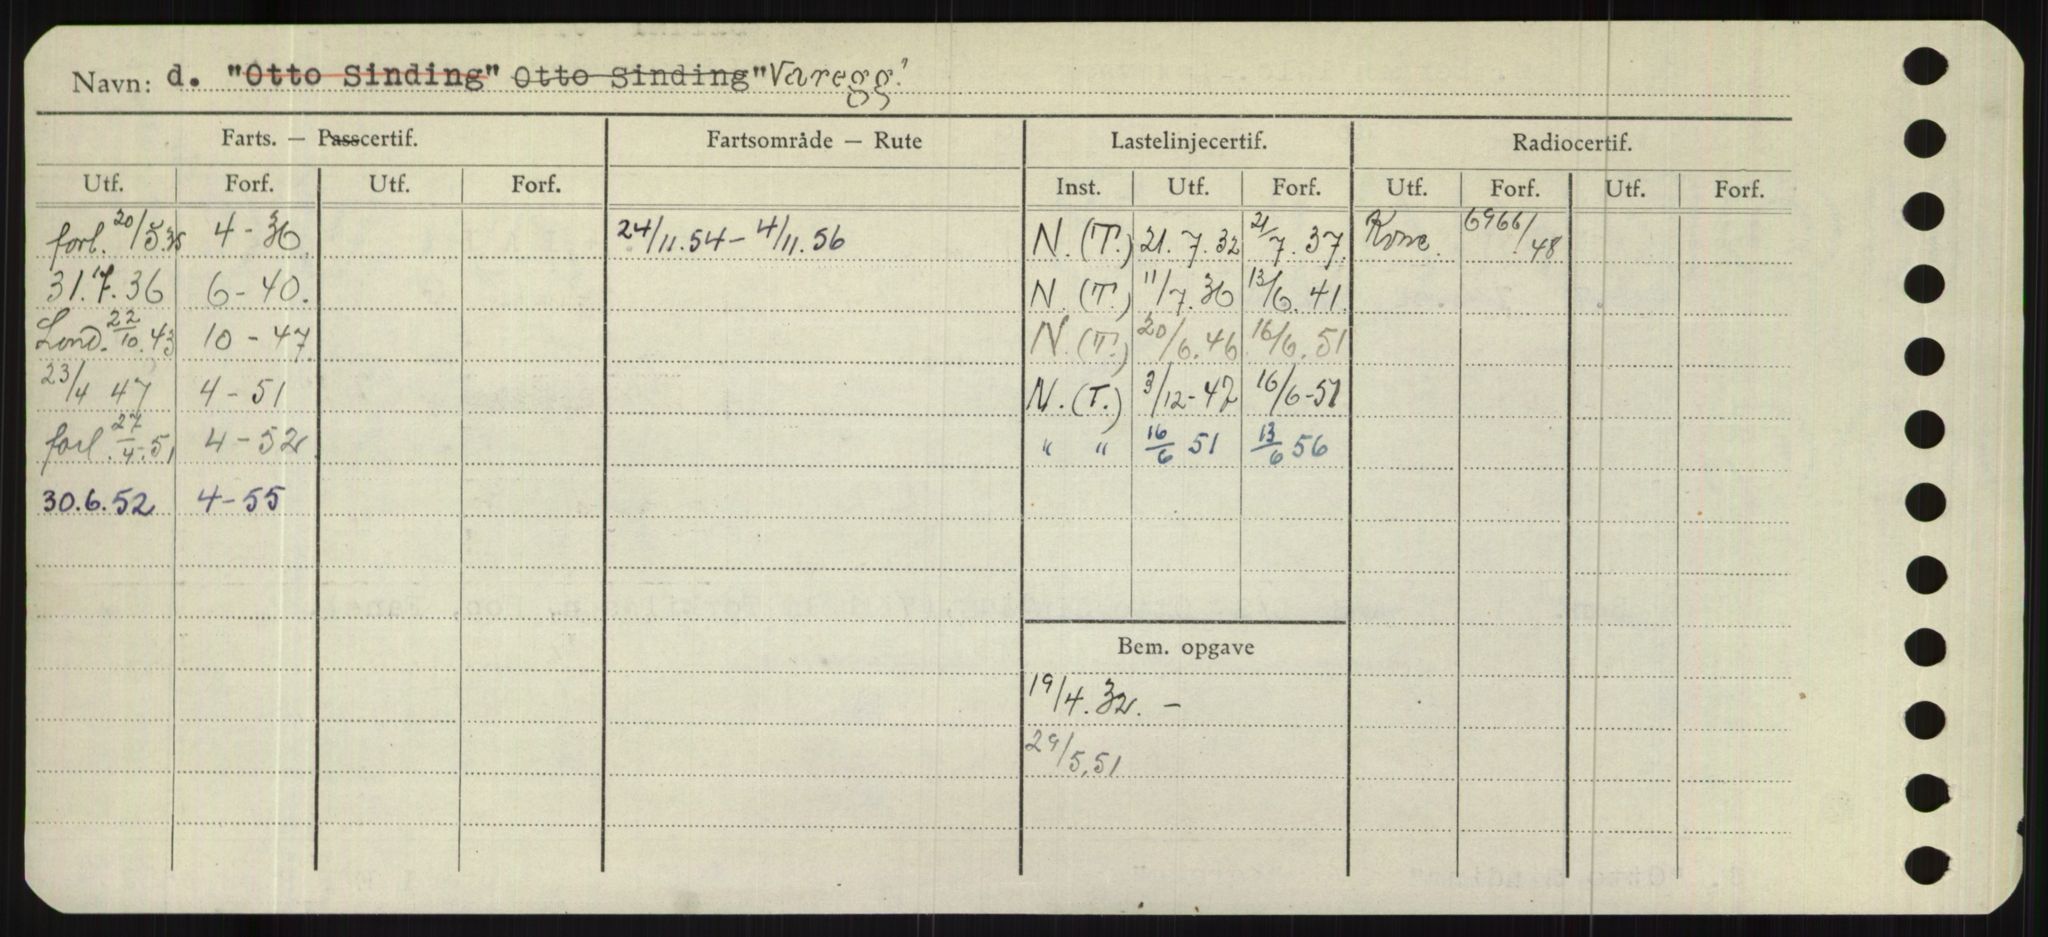 Navn: d. "Otto Sinding" Otto Sinding "Varegg"
Farts. — Passcertif. Fartsområde — Rute Lastelinjecertif. Radiocertif.
Utf. Forf. Utf. Forf. Inst. Utf. Forf. Utf. Forf. Utf. Forf.
forl. 20/5.35 4-36 24/11.54 - 4/11.56 N. (T.) 21.7.32 21/7.37 6966/48
31.7.36 6-40. N. (T.) 11/7.36 13/6.41
Lond. 22/10.43 10-47 N. (T.) 20/6.46 16/6.51
23/4 47 4-51 N. (T.) 3/12-47 16/6-51
forl. 27/4.51 4-52 " " 16/6 51 13/6 56
30.6.52 4-55
Bem. opgave
19/4.32. -
29/5.51